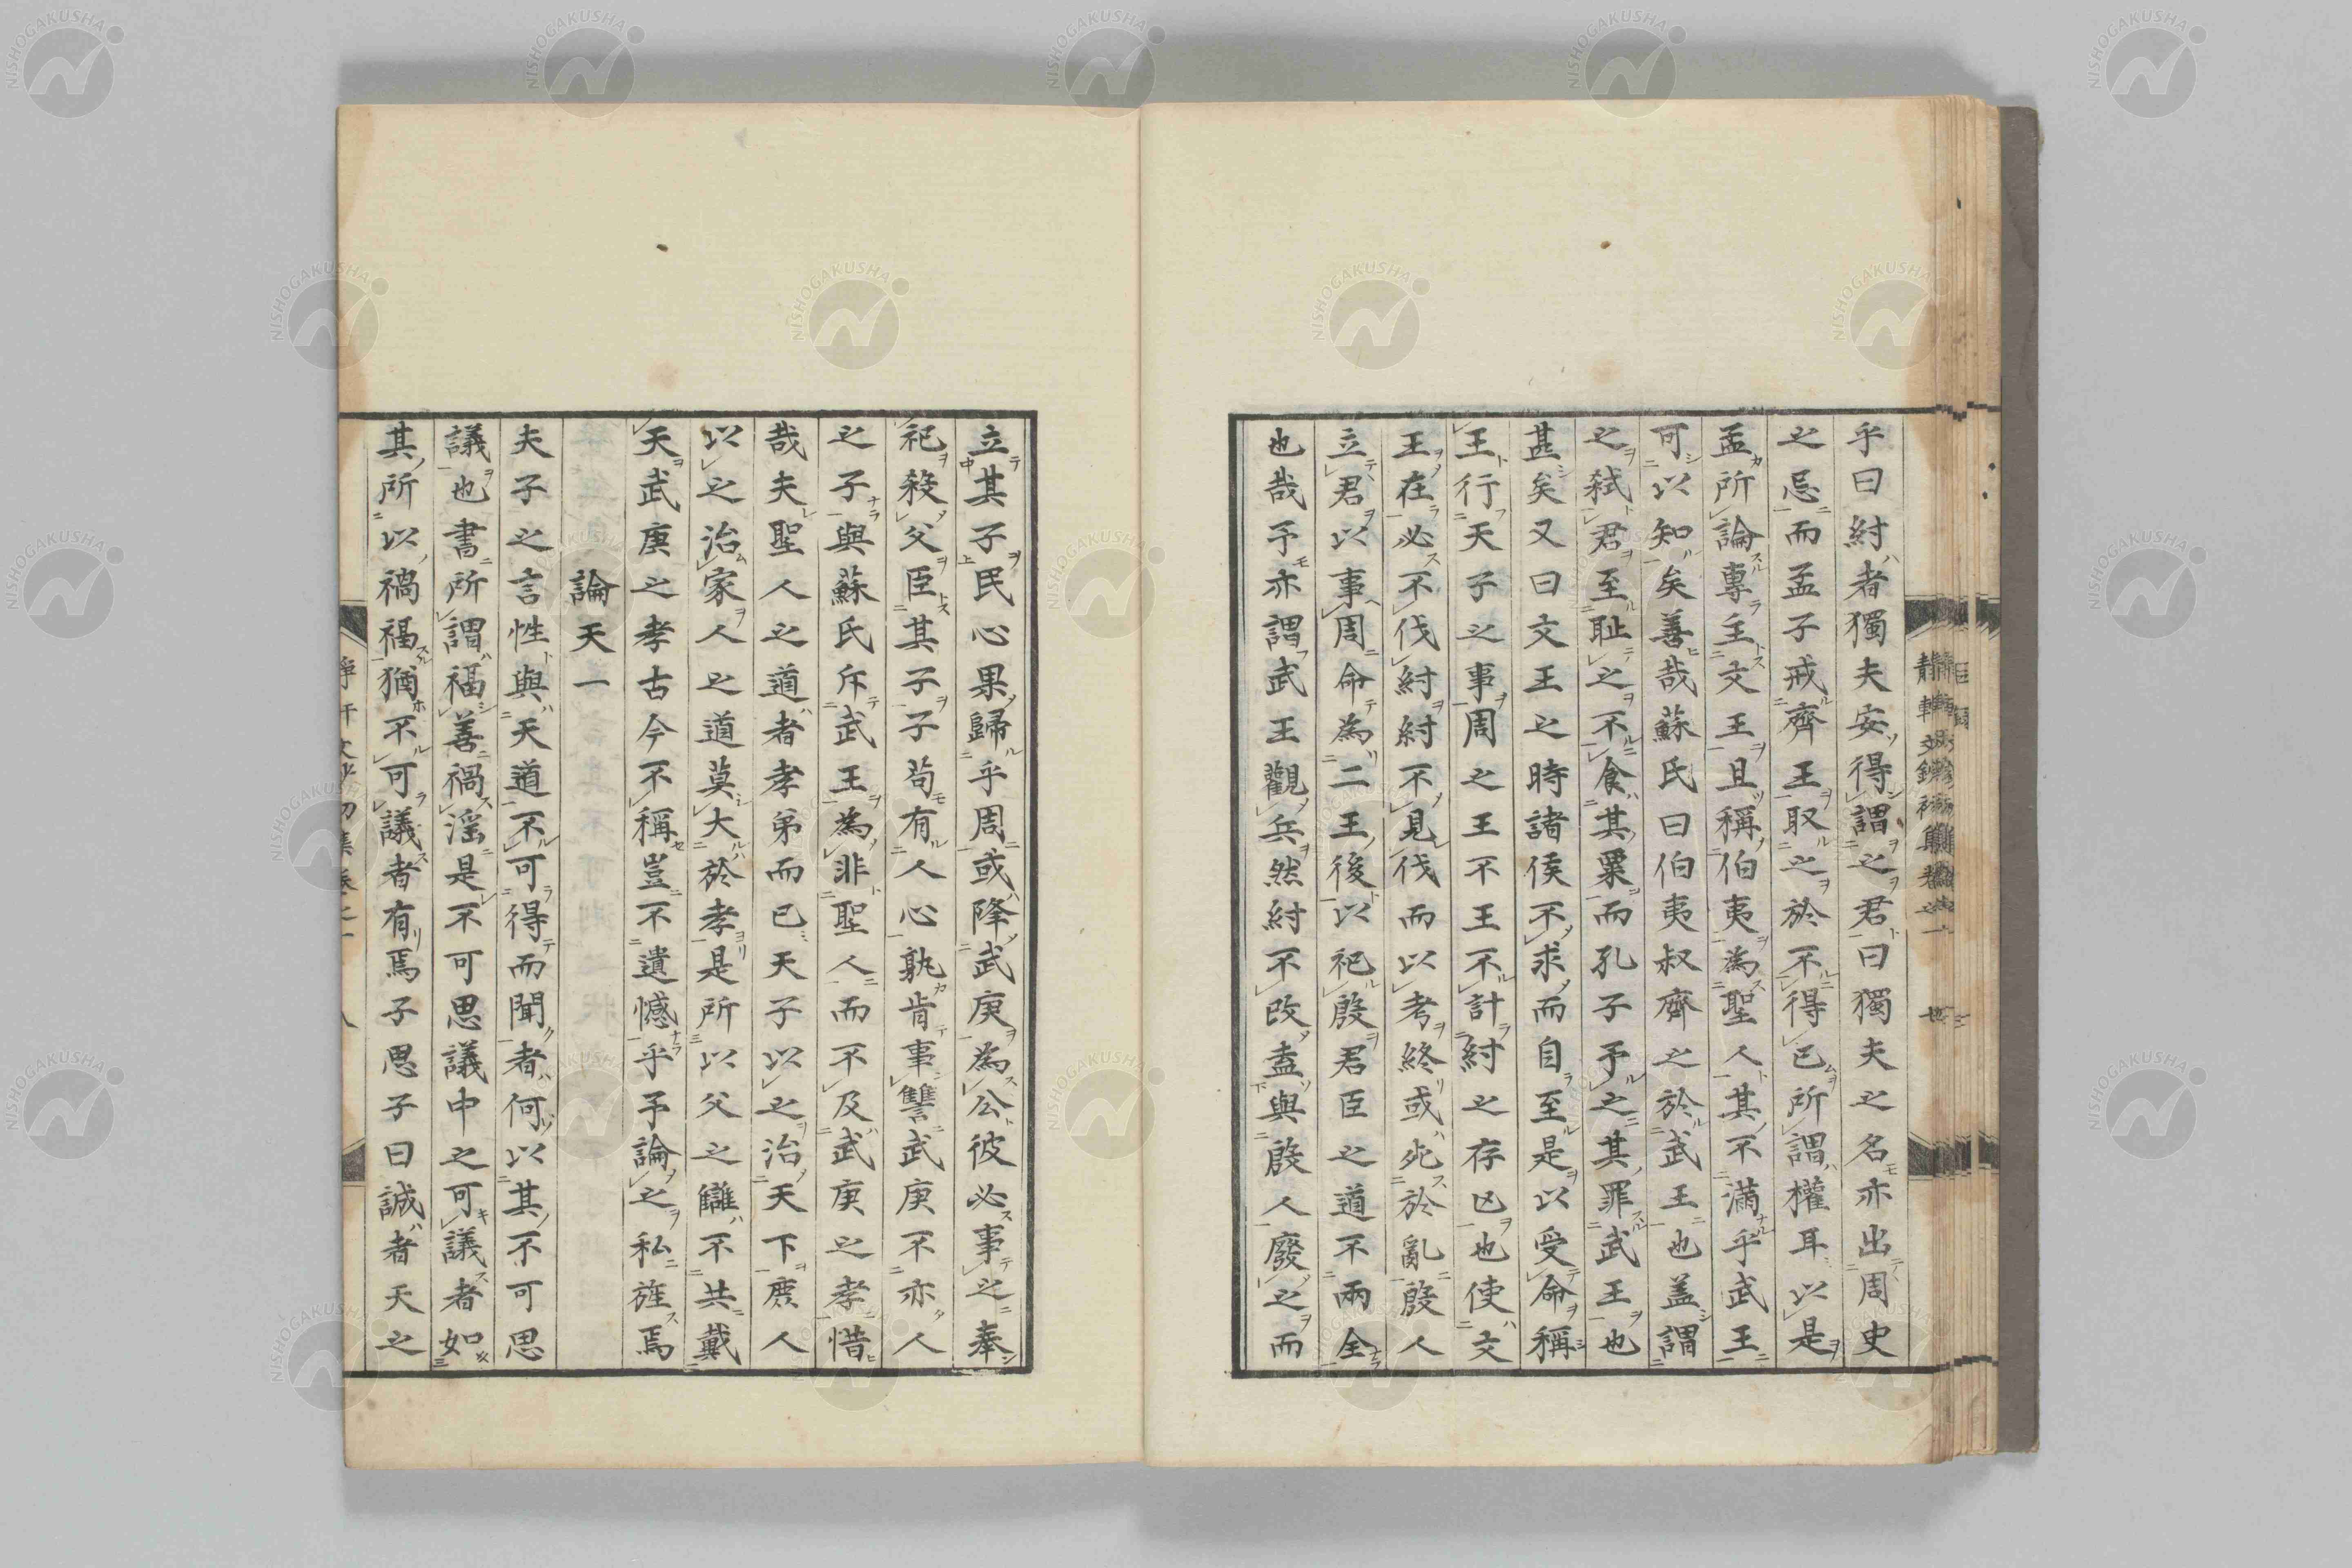 乎曰紂者獨夫安得謂之君曰獨夫之名亦出周史
之忌而孟子戒齊王取之於不得已所謂權耳以是
孟所論專主文王且稱伯夷為聖人其不滿乎武王
可以知矣善哉蘇氏曰伯夷叔齊之於武王也蓋謂
之弑君至耻之不食其粟而孔子予之其罪武王也
甚矣又曰文王之時諸侯不求而自至是以受命稱
王行天子之事周之王不王不計紂之存亡也使文
王在必不伐紂紂不見伐而以考終或死於亂殷人
立君以事周命為二王後以祀殷君臣之道不兩全
也哉予亦謂武王觀兵然紂不改盍與殷人廢之而
立其子民心果歸乎周或降武庚為公彼必事之奉
祀殺父臣其子子苟有人心孰肯事讐武庚不亦人
之子與蘇氏斥武王為非聖人而不及武庚之孝惜
哉夫聖人之道者孝弟而已天子以之治天下庶人
以之治家人之道莫大於孝是所以父之讎不共戴
天武庚之孝古今不稱豈不遺憾乎予論之私旌焉
論天一
夫子之言性與天道不可得而聞者何以其不可思
議也書所謂福善禍淫是不可思議中之可議者如
其所以禍福猶不可議者有焉子思子曰誠者天之
NISHOGAKUSHA